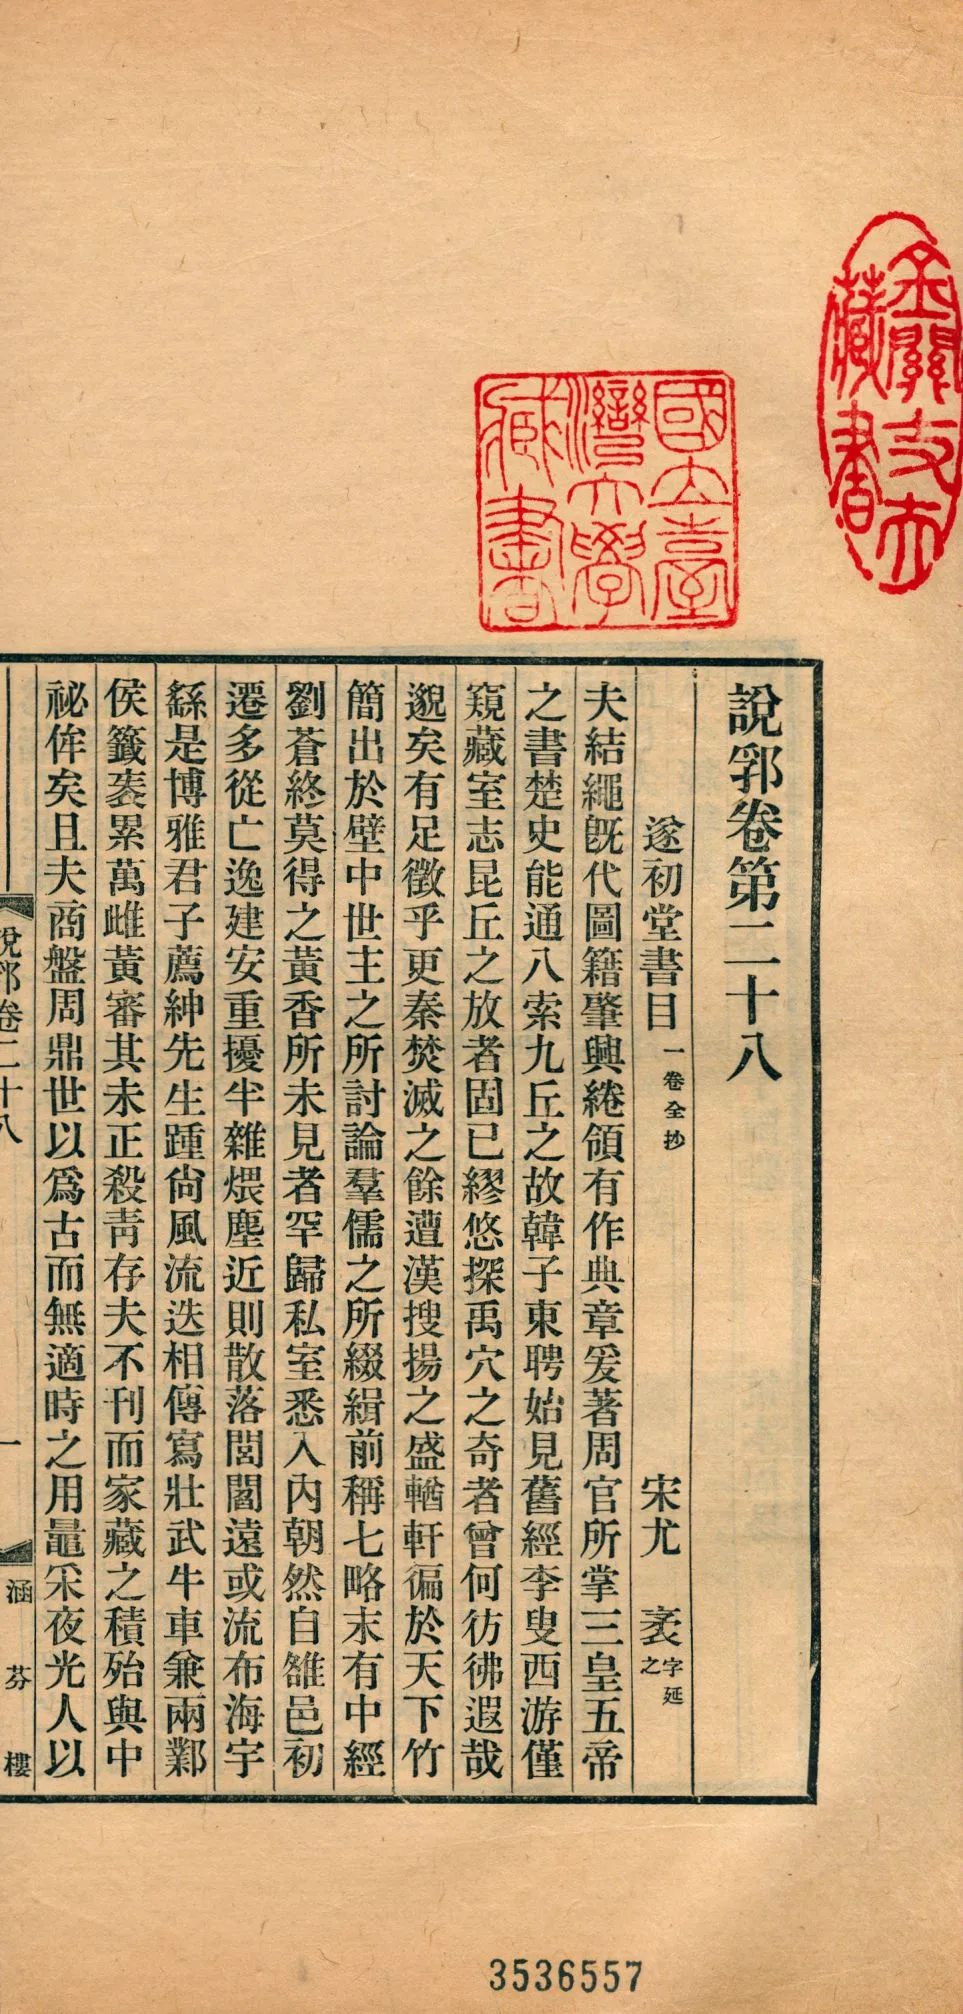 說郛卷第二十八
遂初堂書目 一卷全抄 宋尤 袤字延之
夫結繩旣代圖籍肇興綣領有作典章爰著周官所掌三皇五帝
之書楚史能通八索九丘之故韓子東聘始見舊經李叟西游僅
窺藏室志昆丘之放者固已繆悠探禹穴之奇者曾何彷彿遐哉
邈矣有足徵乎更秦焚滅之餘遭漢搜揚之盛輶軒徧於天下竹
簡出於壁中世主之所討論羣儒之所綴緝前稱七略末有中經
劉蒼終莫得之黃香所未見者罕歸私室悉入內朝然自雒邑初
遷多從亡逸建安重擾半雜煨塵近則散落閭閻遠或流布海宇
繇是博雅君子薦紳先生踵尙風流迭相傳寫壯武牛車兼兩鄴
侯籤袠累萬雌黃審其未正殺靑存夫不刊而家藏之積殆與中
祕侔矣且夫商盤周鼎世以爲古而無適時之用鼂采夜光人以
說郛卷二十八
一
涵芬樓
國立臺灣大學藏書
藏書
3536557